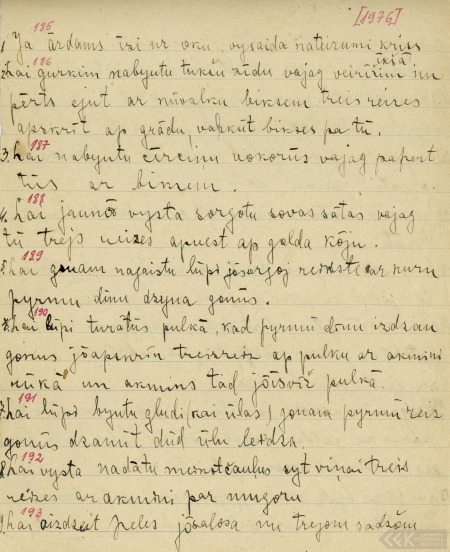 [1976]
185
1. Ja ārdams izi nr oku, vysaida nateirumi kriss
186 ikšā
2. Lai gurkim nabyutu tukšu zīdu vajag veirīšim nu
pērts ejut ar nūvalku biksem treis reizes
apskrīt ap grādu, valkūt bikses pa tū.
187
3. Lai nabyutu cērcinu uokorūs vajag papert
tūs ar biksem.
188
4. Lai jaunō vysta sorgotu sovas sātas vajag
tū trejs reizes apnest ap golda kōju.
189
5. Lai gonam nagaistu lūpi jōsargoj reikste ar kuru
pyrmū dīnu dzyna gonūs.
190
6. Lai lūpi turātūs pulkā, kad pyrmū dīnu izdzan
gonūs jōapskrīn treizreiz ap pulku ar akmini
rūkā un akmins tad jōīsvīž pulkā.
191
7. Lai lūpi byutu gludi (kai ūlas) gonam pyrmū reiz
gonūs dzanūt dūd ūlu leidza.
192
8. Lai vysta nadātu meikstčaulus syt viņai treis
reizes ar akmini par muguru
193
9. Lai aizdzeit peles jōsalosa nu trejom sadžom